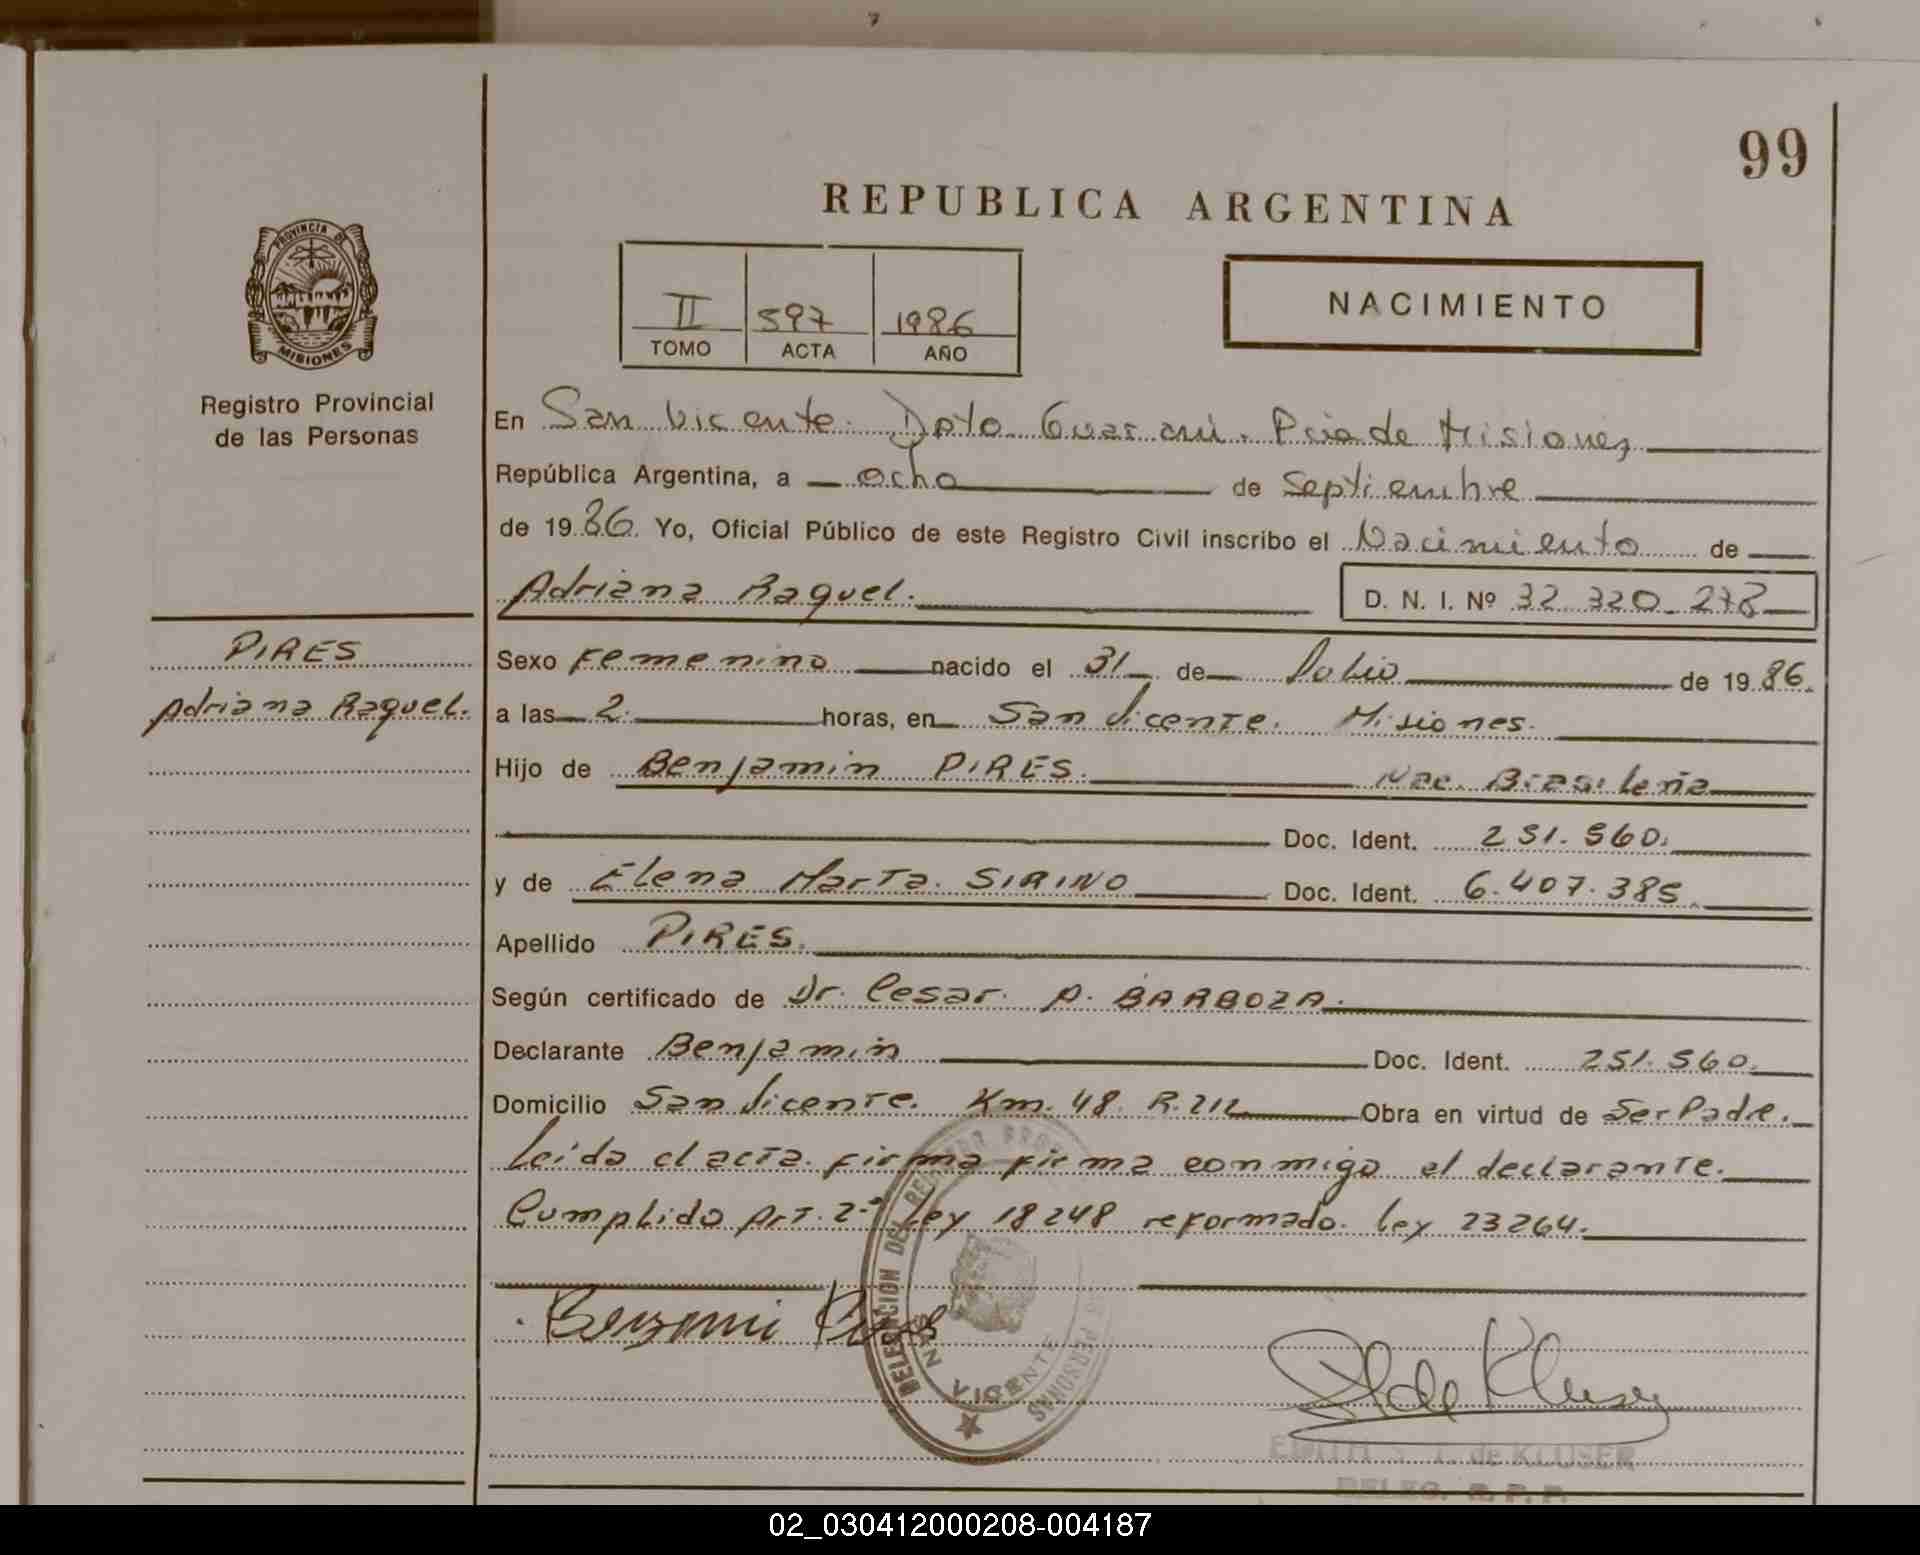 99
REPUBLICA ARGENTINA
PROVINCIA DE
MISIONES
Registro Provincial
de las Personas
II 597 1986
TOMO ACTA AÑO
NACIMIENTO
En San Vicente. Dpto Guarani. Pcia de Misiones
República Argentina, a ocho de Septiembre
de 1986. Yo, Oficial Público de este Registro Civil inscribo el Nacimiento de
Adriana Raquel. D. N. I. Nº 32.320.278
PIRES
Adriana Raquel.
Sexo Femenino nacido el 31 de Julio de 1986.
a las 2. horas, en San Vicente. Misiones.
Hijo de Benjamin PIRES. Nac. Brasileña
Doc. Ident. 251.560.
y de Elena Marta. SIRINO Doc. Ident. 6.407.385.
Apellido PIRES.
Según certificado de Dr. Cesar. A. BARBOZA.
Declarante Benjamin Doc. Ident. 251.560.
Domicilio San Vicente. Km. 48. R. 212 Obra en virtud de Ser Padre.
Leida el acta. firma firma conmigo el declarante.
Cumplido Art. 2º Ley 18248 reformado. Ley 23264.
DELEGACION DEL REGISTRO PROV PERSONAS
SAN VICENTE
de Kluser
EDITH S. T. de KLUSER
DELEG. R. P. P.
02_030412000208-004187